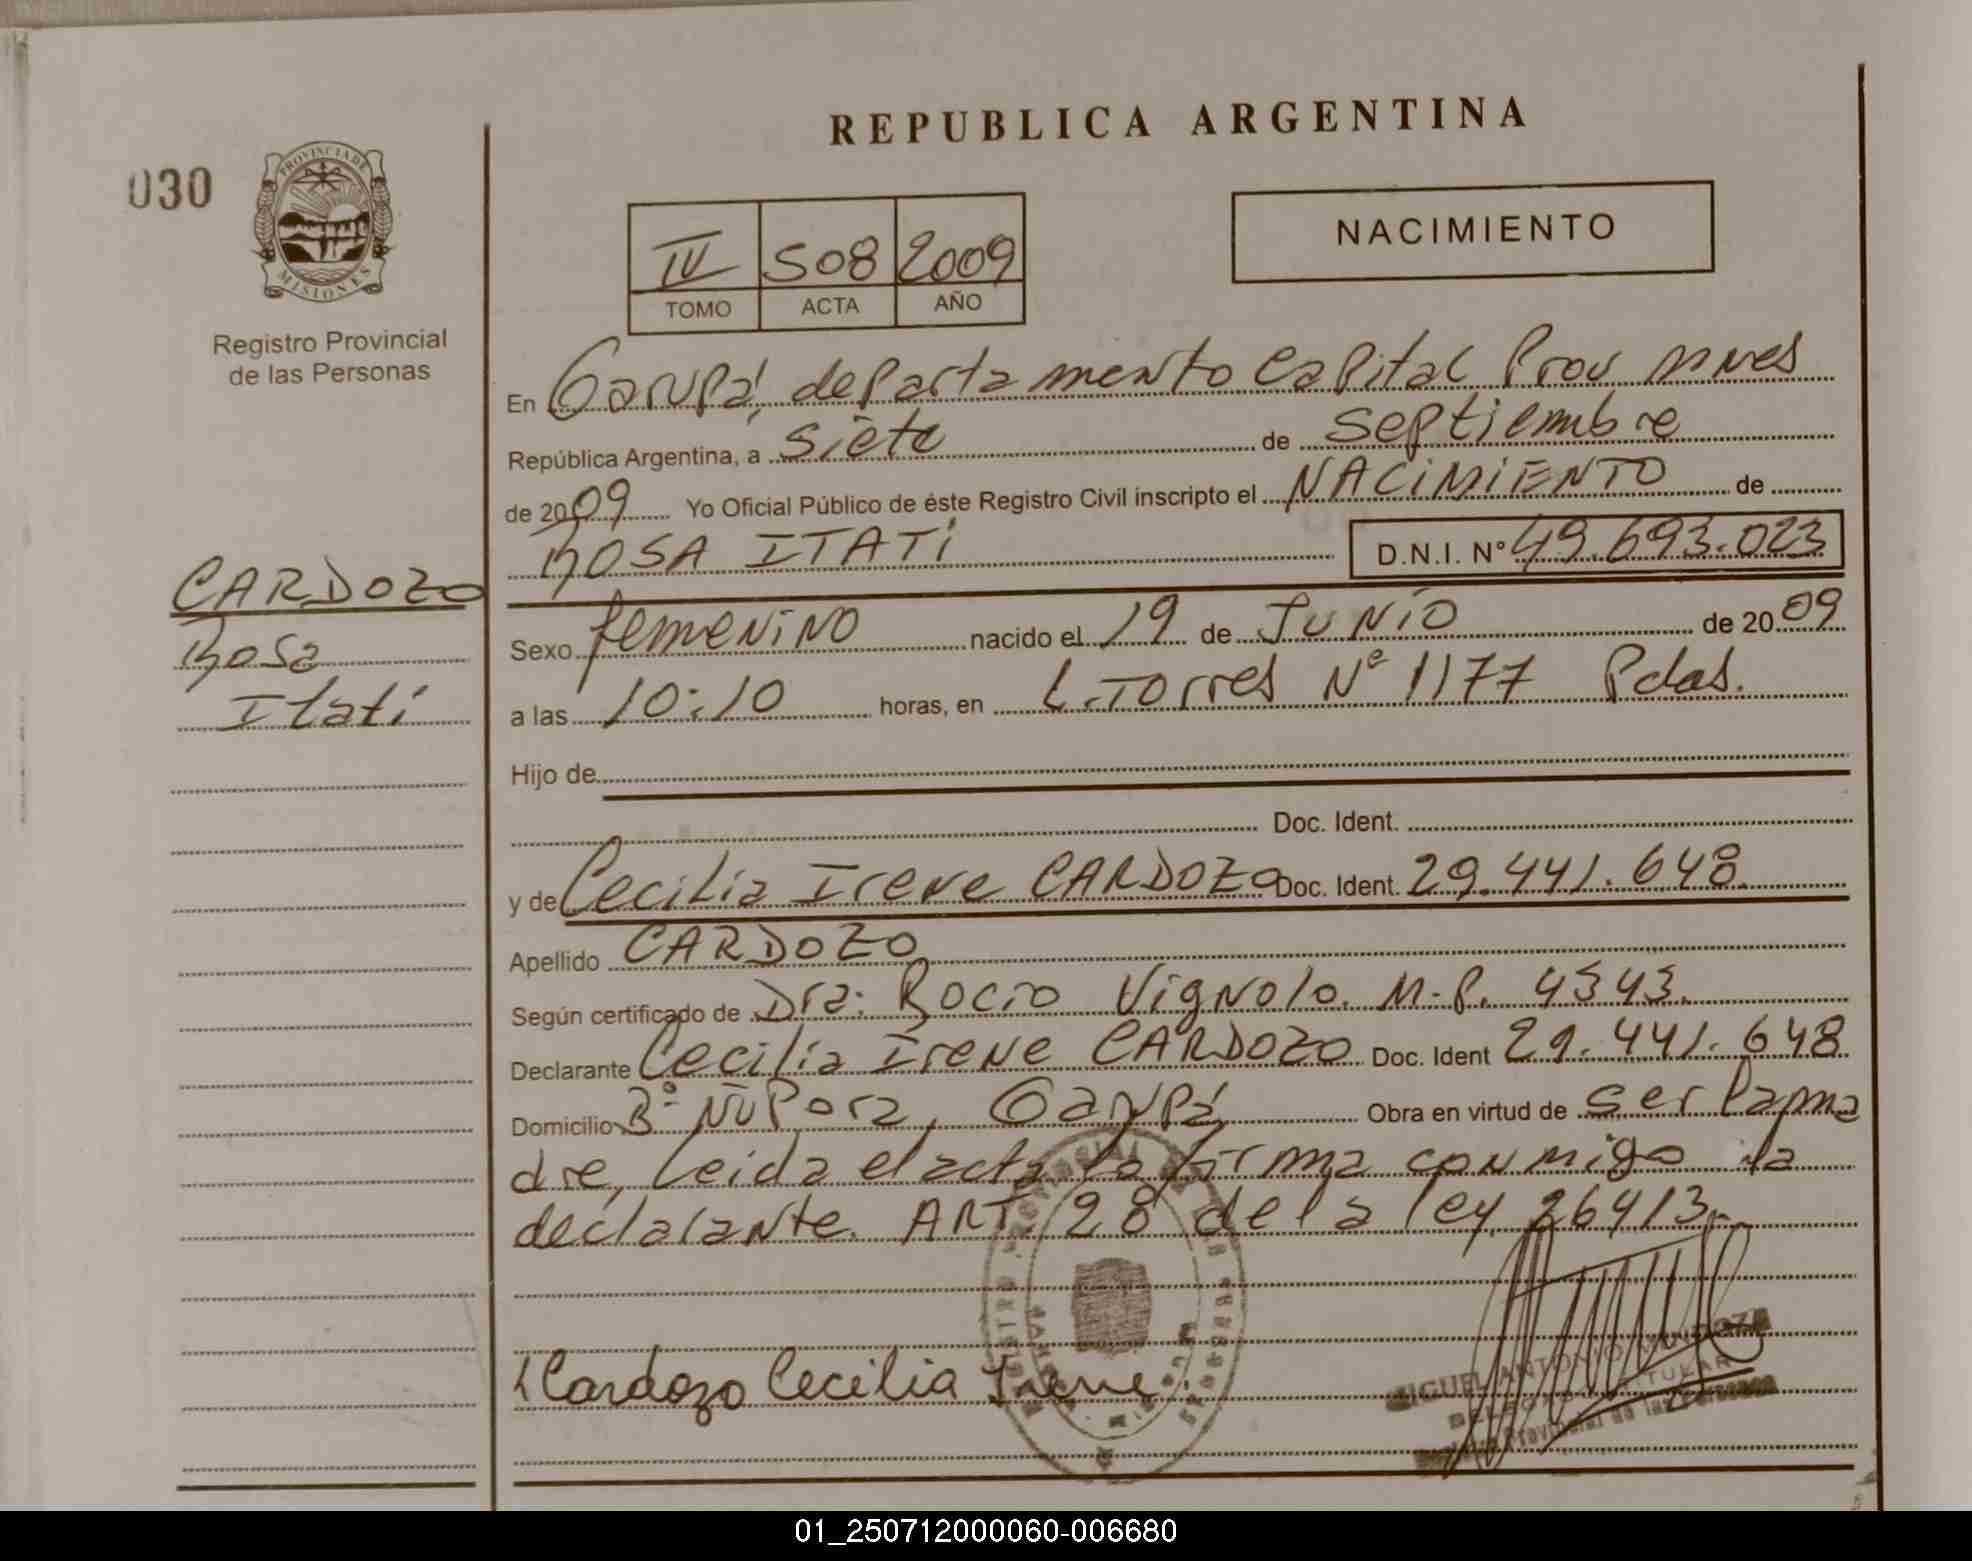 REPUBLICA ARGENTINA
030
PROVINCIA DE
MISIONES
Registro Provincial
de las Personas
IV 508 2009
TOMO ACTA AÑO
NACIMIENTO
En Garupá, departamento Capital Prov Mnes
República Argentina, a siete de septiembre
de 2009 Yo Oficial Público de éste Registro Civil inscripto el NACIMIENTO de
ROSA ITATÍ D.N.I. Nº 49.693.023
CARDOZO
Rosa
Itatí
Sexo femenino nacido el 19 de JUNIO de 2009
a las 10:10 horas, en L. Torres Nº 1177 Pdas.
Hijo de
Doc. Ident.
y de Cecilia Irene CARDOZO Doc. Ident. 29.441.648
Apellido CARDOZO
Según certificado de Dra. Rocio Vignolo. M.P. 4343.
Declarante Cecilia Irene CARDOZO Doc. Ident 29.441.648
Domicilio Bº Ñu Pora, Garupá Obra en virtud de ser la ma
dre, leida el acta la firma conmigo la
declarante. ART. 28 de la ley 26413.
Cardozo Cecilia Irene
MIGUEL ANTONIO
Provincial de las Personas
01_250712000060-006680